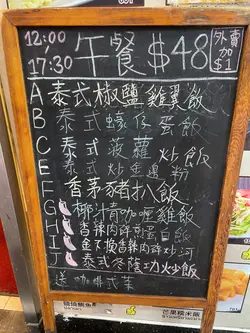 12:00
17:30 午餐 $48 外賣 $1
A 泰式椒鹽雞翼飯
B 泰式蠔仔蛋飯
C 泰式菠蘿炒飯
E 泰式炒金邊粉
F 香茅豬扒飯
G 椰汁青咖喱雞飯
H 香辣肉碎煎蛋白飯
I 金不換香辣肉碎炒河
J 泰式冬蔭功炒飯
送 咖啡式茶
芒果糯米飯